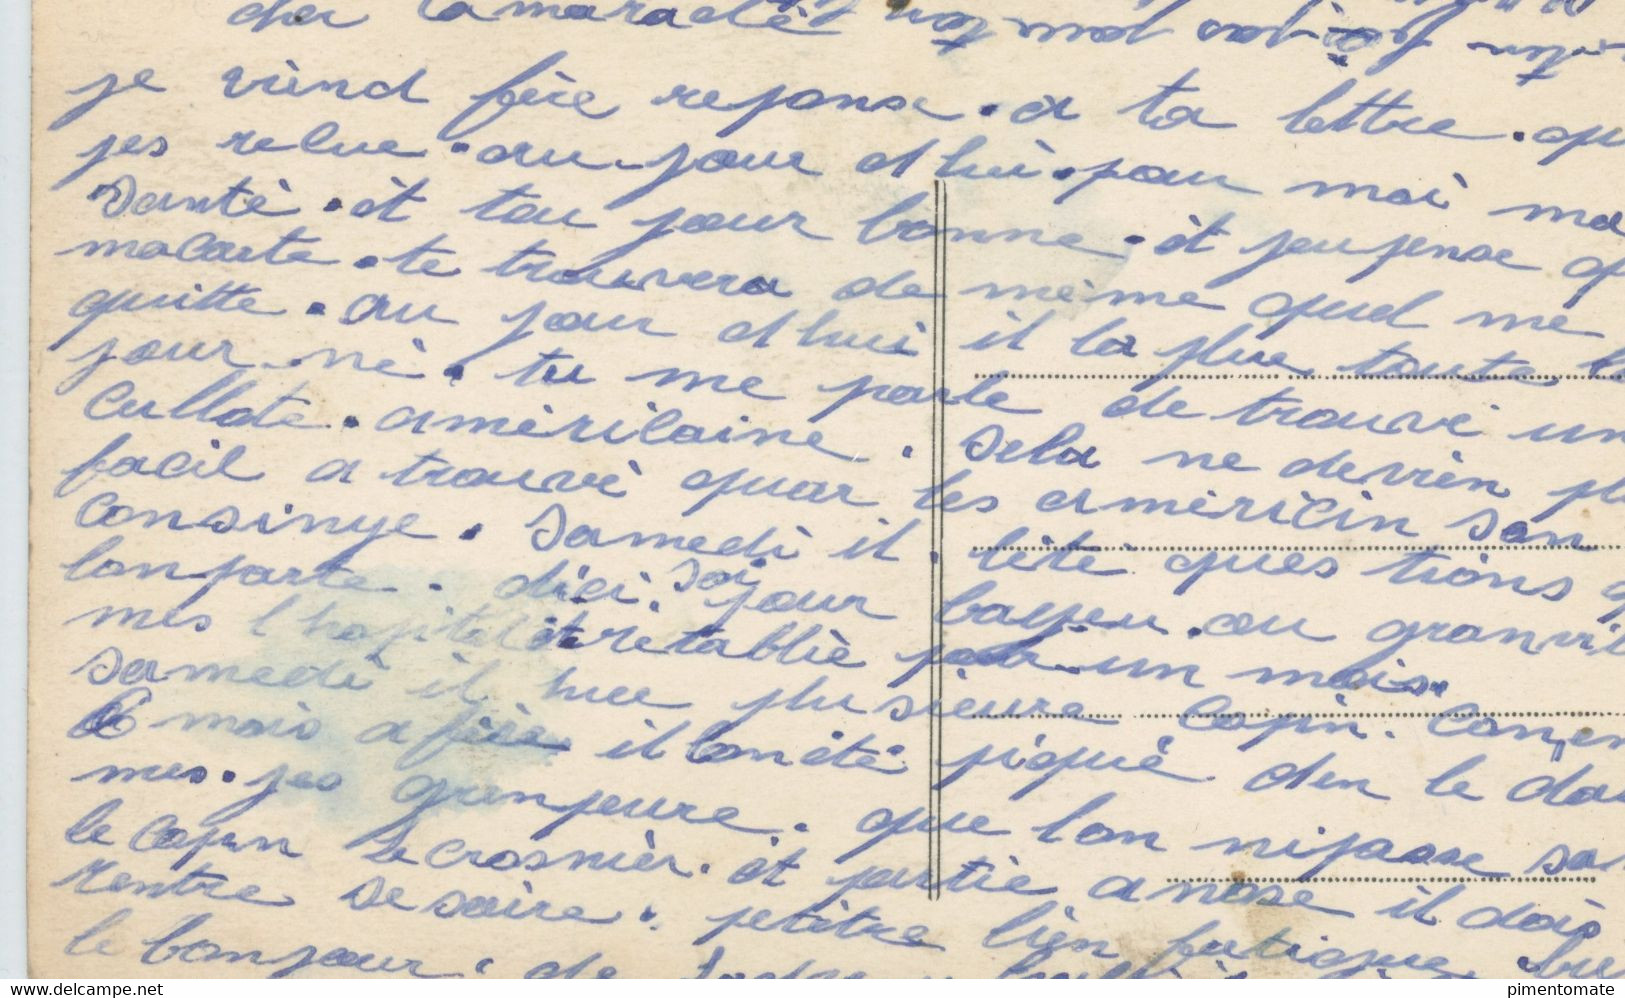 cher Camaradèt
je viend fère reponse. a ta lettre. qu
jes relue. au jour d hui. pour moi ma
Santè. èt tou jour bonne. èt jeu pense q
ma carte. te trouvera de mème quel me
quitte. au jour d hui il la plue toute l
jour nè. tu me parle de trouvè un
Cullote. amèricaine. Sela ne devièn pl
facil a trouvè quar les amèricin son
Consinye. Samedi il. lètè ques tions q
lon parte. dici. Soi jour bayeu. ou granvil
mes l hopital èt retabliè pour un mois.
Samedi il hue plusieure Copin.
mois a fère il lon ètè piquè den le do
mes. jes grenpeure. que lon ni passe sa
le Copin Lecrosnièr. èt partie anose il dois
rentre se soire. petètre bièn fatigue
le bonjour. de
pimentomate
www.delcampe.net